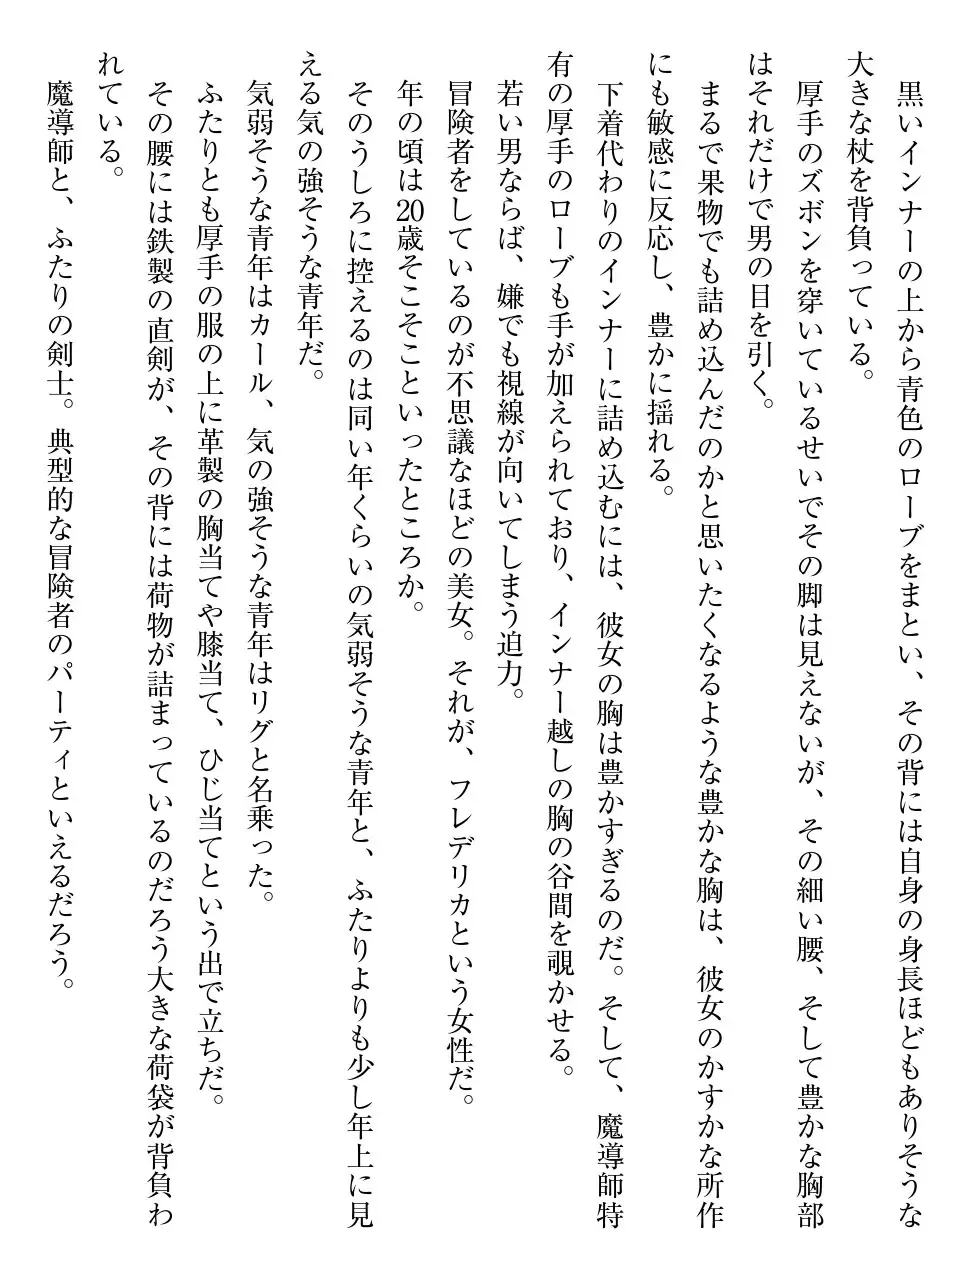 黒いインナーの上から青色のローブをまとい、その背には自身の身長ほどもありそうな
大きな杖を背負っている。
　厚手のズボンを穿いているせいでその脚は見えないが、その細い腰、そして豊かな胸部
はそれだけで男の目を引く。
　まるで果物でも詰め込んだのかと思いたくなるような豊かな胸は、彼女のかすかな所作
にも敏感に反応し、豊かに揺れる。
　下着代わりのインナーに詰め込むには、彼女の胸は豊かすぎるのだ。そして、魔導師特
有の厚手のローブも手が加えられており、インナー越しの胸の谷間を覗かせる。
　若い男ならば、嫌でも視線が向いてしまう迫力。
　冒険者をしているのが不思議なほどの美女。それが、フレデリカという女性だ。
　年の頃は20歳そこそこといったところか。
　そのうしろに控えるのは同い年くらいの気弱そうな青年と、ふたりよりも少し年上に見
える気の強そうな青年だ。
　気弱そうな青年はカール、気の強そうな青年はリグと名乗った。
　ふたりとも厚手の服の上に革製の胸当てや膝当て、ひじ当てという出で立ちだ。
　その腰には鉄製の直剣が、その背には荷物が詰まっているのだろう大きな荷袋が背負わ
れている。
　魔導師と、ふたりの剣士。典型的な冒険者のパーティといえるだろう。